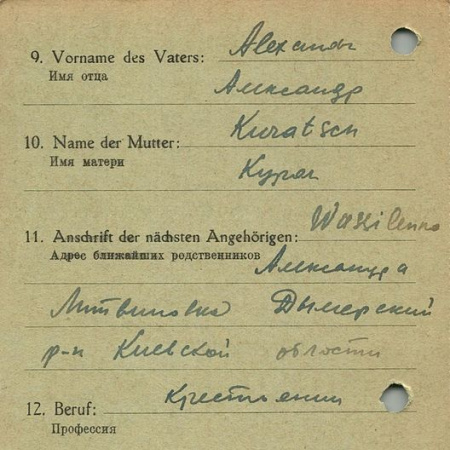 9. Vorname des Vaters: Alexandr
Имя отца
Александр
10. Name der Mutter: Kuratsch
Имя матери
Курач
Wassilenko
11. Anschrift der nächsten Angehörigen:
Адрес ближайших родственников Александра
Литвиновка Дымерский
р-н Киевской области
12. Beruf: крестьянин
Профессия